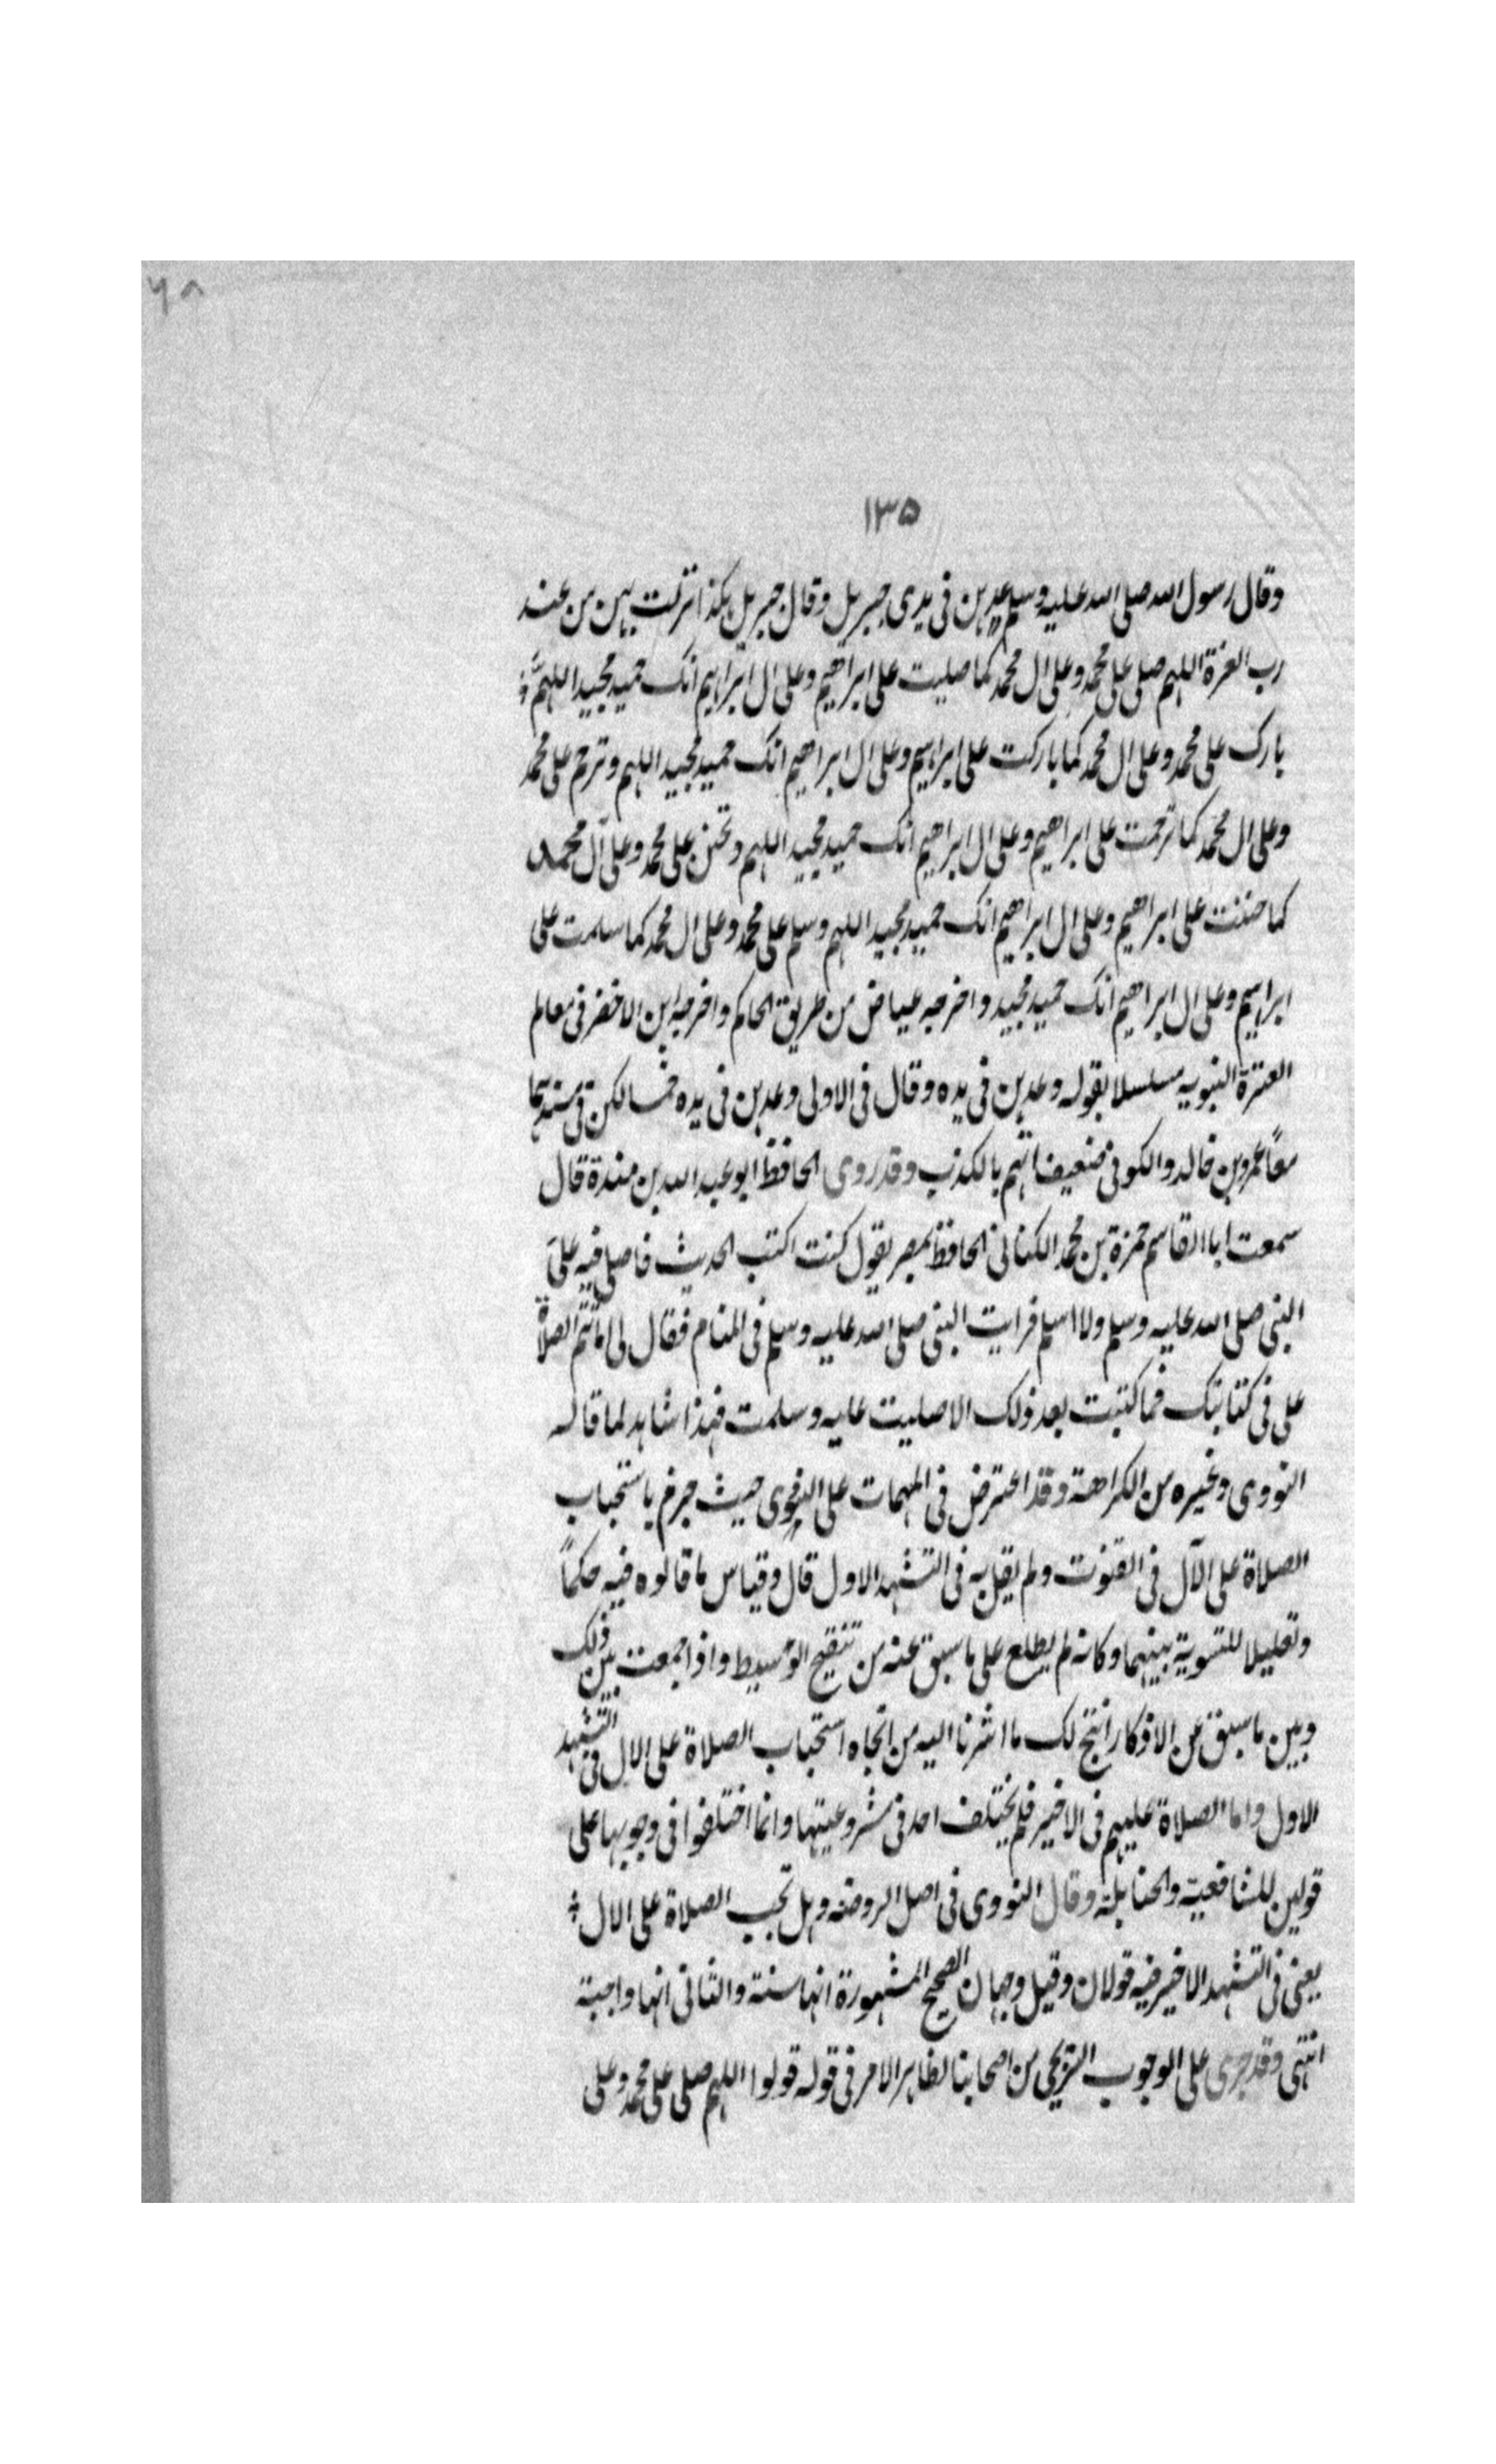 ٦٨
١٣٥
وقال رسول الله صلى الله عليه وسلم عدهن فى يدى جبريل وقال جبريل هكذا نزلت بهن من عند
رب العزة اللهم صلى على محمد وعلى ال محمد كما صليت على ابراهيم وعلى ال ابراهيم انك حميد مجيد اللهم
بارك على محمد وعلى ال محمد كما باركت على ابراهيم وعلى ال ابراهيم انك حميد مجيد اللهم وترحم على محمد
وعلى ال محمد كما ترحمت على ابراهيم وعلى ال ابراهيم انك حميد مجيد اللهم وتحنن على محمد وعلى آل محمد
كما حننت على ابراهيم وعلى ال ابراهيم انك حميد مجيد اللهم وسلم على محمد وعلى ال محمد كما سلمت على
ابراهيم وعلى ال ابراهيم انك حميد مجيد واخرجه عياض من طريق الحاكم واخرجه ابن الاخضر فى معالم
العترة النبويه مسلسلا بقوله وعدهن فى يده وقال فى الاولى وعدهن فى يده خمسا لكن فى سندهما
معاً عمرو بن خالد والكوفى ضعيف اتهم بالكذب وقد روى الحافظ ابو عبد الله بن مندة قال
سمعت ابا القاسم حمزة بن محمد الكنانى الحافظ بمصر يقول كنت اكتب الحديث فاصلى فيه على
النبى صلى الله عليه وسلم ولا اسلم فرايت النبى صلى الله عليه وسلم فى المنام فقال لى اما تتم الصلاة
على فى كتابك فما كتبت بعد ذلك الا صليت عليه وسلمت فهذا شاهد لما قاله
النووى وغيره من الكراهة وقد اعترض فى المهمات على النووى حيث جزم باستحباب
الصلاة على الآل فى القنوت ولم يقل به فى التشهد الاول قال وقياس ما قالوه فيه حكماً
وتعليلا للتسوية بينهما وكانه لم يطلع على ما سبق عنه من تنقيح الوسيط واذا جمعت بين ذلك
وبين ما سبق عن الاذكار انتج لك ما اشرنا اليه من اتجاه استحباب الصلاة على الال فى التشهد
الاول واما الصلاة عليهم فى الاخير فلم يختلف احد فى مشروعيتها وانما اختلفوا فى وجوبها على
قولين للشافعية والحنابلة وقال النووى فى اصل الروضة وهل تجب الصلاة على الال
يعنى فى التشهد الاخير فيه قولان وقيل وجهان الصحيح المشهورة انها سنة والثانى انها واجبة
انتهى وقد جرى على الوجوب التربجى من اصحابنا لظاهر الامر فى قوله قولوا اللهم صلى على محمد وعلى